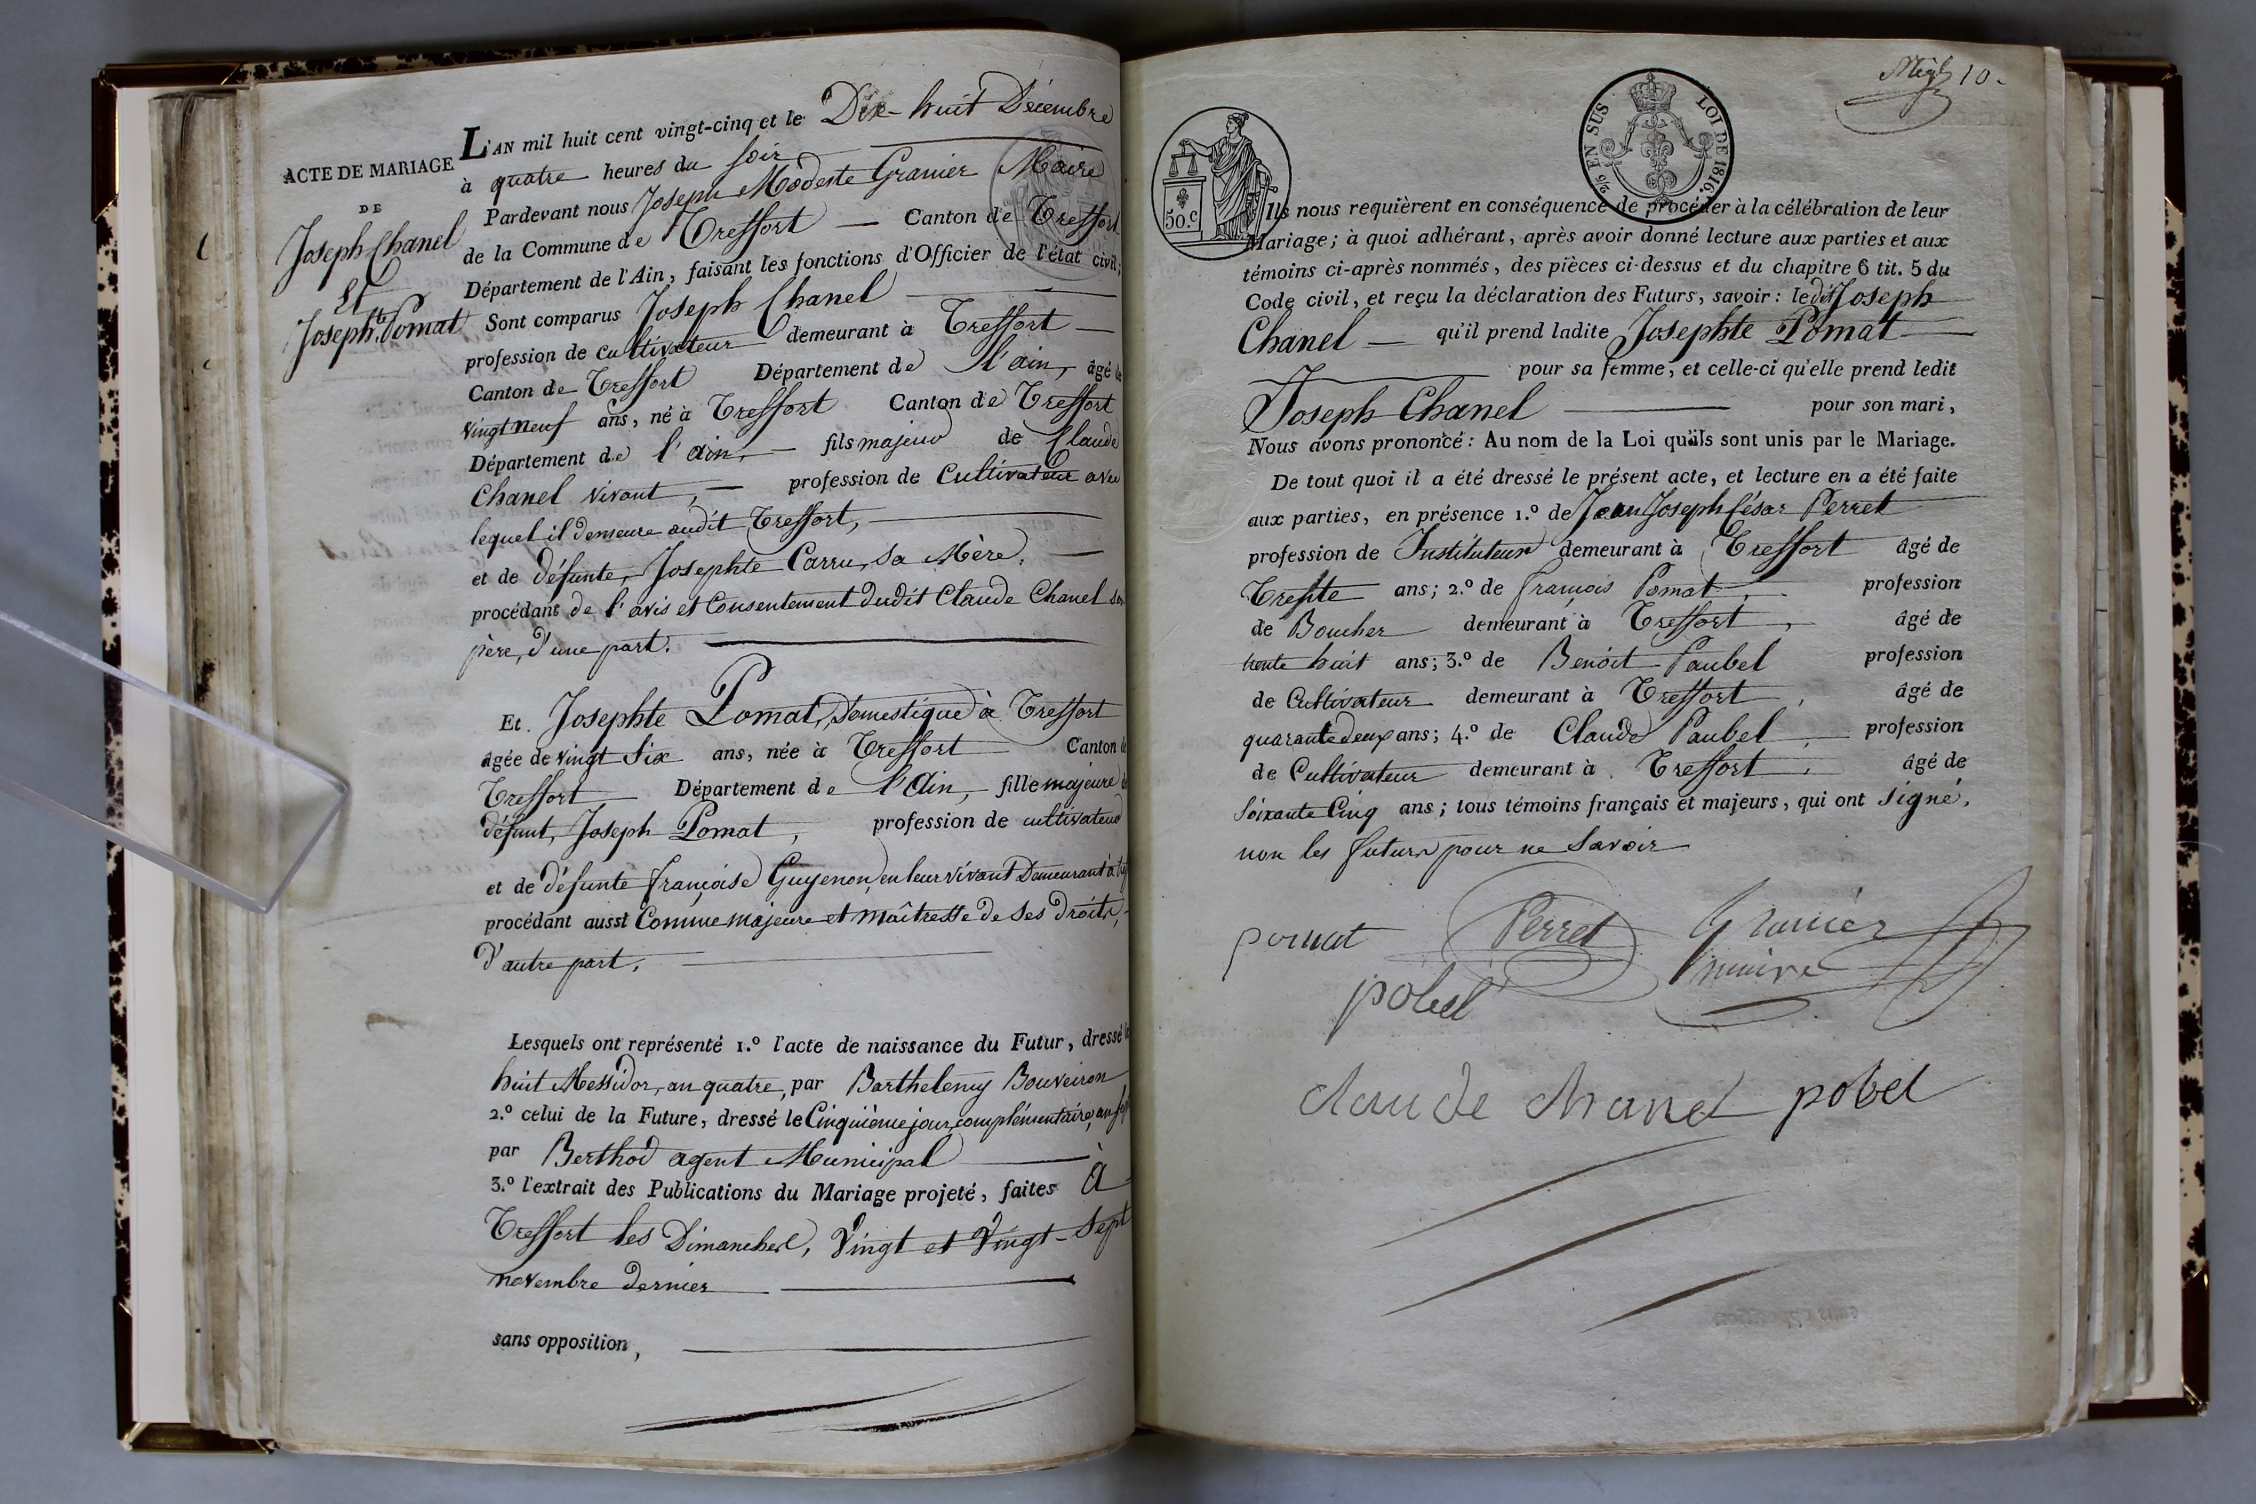 ACTE DE MARIAGE
DE
Joseph Chanel
Et
Josephte Pomat
L'AN mil huit cent vingt-cinq et le Dix-huit Décembre
à quatre heures du soir
Pardevant nous Joseph Modeste Granier Maire
de la Commune de Treffort — Canton de Treffort
Département de l'Ain, faisant les fonctions d'Officier de l'état civil;
Sont comparus Joseph Chanel
profession de cultivateur demeurant à Treffort
Canton de Treffort Département de l'ain, âgé de
vingt neuf ans, né à Treffort Canton de Treffort
Département de l'ain, fils majeur de Claude
Chanel vivant, — profession de Cultivateur avec
lequel il demeure audit Treffort,
et de défunte, Josephte Carru, sa Mère,
procédant de l'avis et Consentement dudit Claude Chanel son
père, d'une part.
Et Josephte Pomat, Domestique à Treffort
âgée de vingt Six ans, née à Treffort Canton de
Treffort Département de l'Ain, fille majeure de
défunt, Joseph Pomat, profession de cultivateur
et de défunte françoise Guyenon, en leur vivant Demeurant à
procédant aussi Comme majeure et maîtresse de ses droits,
d'autre part.
Lesquels ont représenté 1.º l'acte de naissance du Futur, dressé le
huit Messidor, an quatre, par Barthelemy Bouveiron
2.º celui de la Future, dressé le Cinquième jour complémentaire, an sept
par Berthod agent Municipal
3.º l'extrait des Publications du Mariage projeté, faites à
Treffort les Dimanches, Vingt et Vingt-Sept
novembre dernier
sans opposition,
10.
50.c
2/10 EN SUS LOI DE 1816.
Ils nous requièrent en conséquence de procéder à la célébration de leur
Mariage; à quoi adhérant, après avoir donné lecture aux parties et aux
témoins ci-après nommés, des pièces ci-dessus et du chapitre 6 tit. 5 du
Code civil, et reçu la déclaration des Futurs, savoir: ledit Joseph
Chanel — qu'il prend ladite Josephte Pomat
pour sa femme, et celle-ci qu'elle prend ledit
Joseph Chanel pour son mari,
Nous avons prononcé: Au nom de la Loi qu'ils sont unis par le Mariage.
De tout quoi il a été dressé le présent acte, et lecture en a été faite
aux parties, en présence 1.º de Jean Joseph César Perret
profession de Instituteur demeurant à Treffort âgé de
Trente ans; 2.º de françois Pomat, profession
de Boucher demeurant à Treffort, âgé de
trente huit ans; 3.º de Benoit Paubel profession
de Cultivateur demeurant à Treffort, âgé de
quarante deux ans; 4.º de Claude Paubel, profession
de Cultivateur demeurant à Treffort, âgé de
Soixante Cinq ans; tous témoins français et majeurs, qui ont signé,
non les futurs pour ne Savoir
pomat Perret Granier
maire
pobel
claude chanel pobel